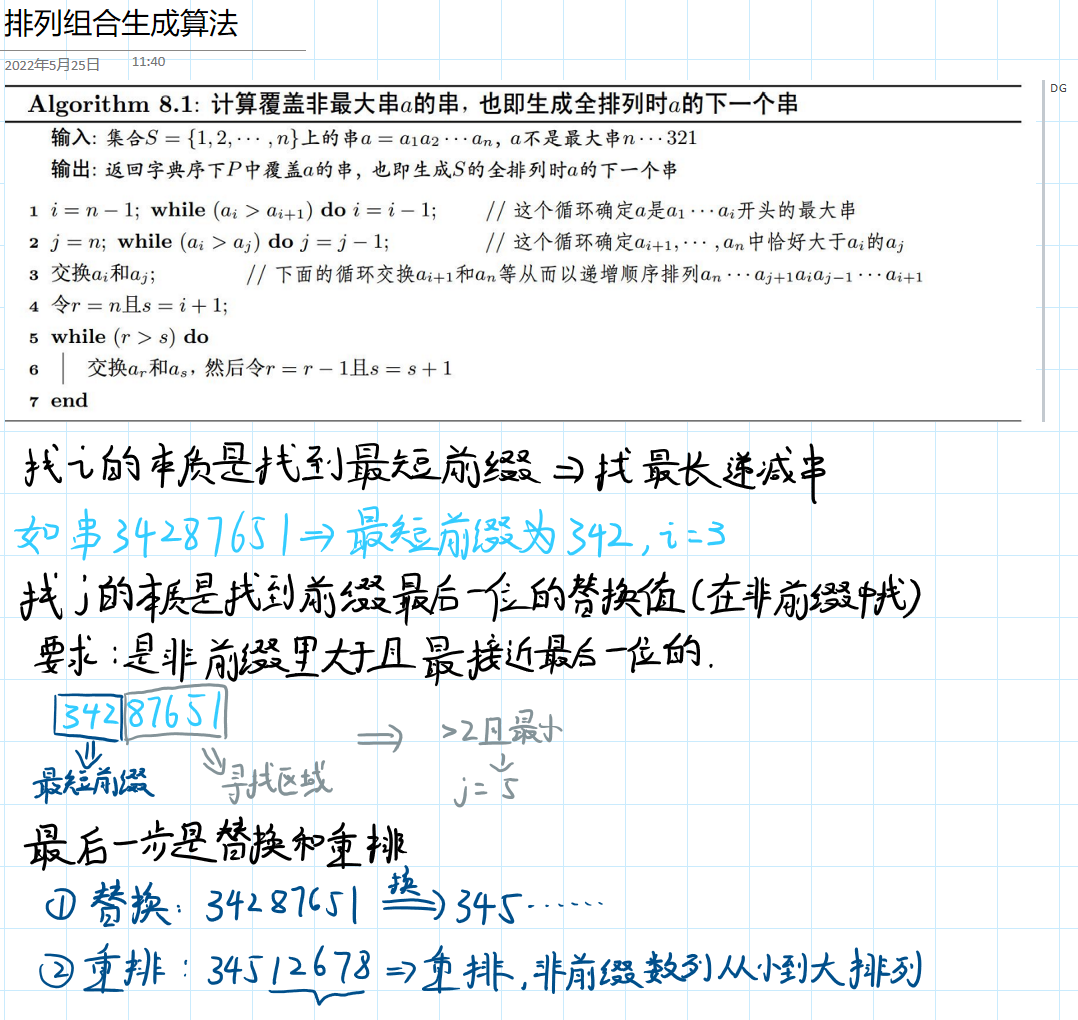 排列组合生成算法
2022年5月25日 11:40
DG
Algorithm 8.1: 计算覆盖非最大串a的串，也即生成全排列时a的下一个串
输入: 集合S = {1, 2, ⋯ , n}上的串a = a₁a₂ ⋯ aₙ, a不是最大串n ⋯ 321
输出: 返回字典序下P中覆盖a的串，也即生成S的全排列时a的下一个串
1 i = n − 1; while (aᵢ > aᵢ₊₁) do i = i − 1; // 这个循环确定a是a₁ ⋯ aᵢ开头的最大串
2 j = n; while (aᵢ > aⱼ) do j = j − 1; // 这个循环确定aᵢ₊₁, ⋯ , aₙ中恰好大于aᵢ的aⱼ
3 交换aᵢ和aⱼ; // 下面的循环交换aᵢ₊₁和aₙ等从而以递增顺序排列aₙ ⋯ aⱼ₊₁aᵢaⱼ₋₁ ⋯ aᵢ₊₁
4 令r = n且s = i + 1;
5 while (r > s) do
6 交换aᵣ和aₛ，然后令r = r − 1且s = s + 1
7 end
找i的本质是找到最短前缀 ⇒ 找最长递减串
如串34287651 ⇒ 最短前缀为342, i=3
找j的本质是找到前缀最后一位的替换值(在非前缀中找)
要求:是非前缀里大于且最接近最后一位的.
34287651 ⇒ >2且最小
最短前缀 寻找区域 j= 5
最后一步是替换和重排
① 替换: 34287651 换⇒ 345······
② 重排: 34512678 ⇒ 重排,非前缀数列从小到大排列